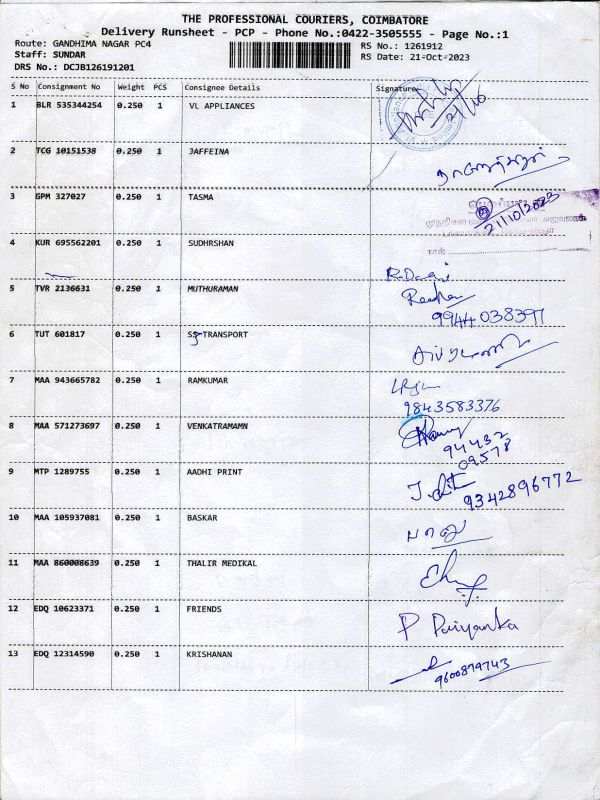 THE PROFESSIONAL COURIERS, COIMBATORE
Delivery Runsheet - PCP - Phone No.:0422-3505555 - Page No.:1
Route: GANDHIMA NAGAR PC4
RS No.: 1261912
Staff: SUNDAR
RS Date: 21-Oct-2023
DRS No.: DCJB126191201
S No Consignment No Weight PCS Consignee Details Signature
1 BLR 535344254 0.250 1 VL APPLIANCES
21/10
2 TCG 10151538 0.250 1 JAFFEINA
3 GPM 327027 0.250 1 TASMA
21/10/2023
நாள்
4 KUR 695562201 0.250 1 SUDHRSHAN
5 TVR 2136631 0.250 1 MUTHURAMAN
9944038397
6 TUT 601817 0.250 1 SS TRANSPORT
7 MAA 943665782 0.250 1 RAMKUMAR
9843583376
8 MAA 571273697 0.250 1 VENKATRAMAMN
94432
09578
9 MTP 1289755 0.250 1 AADHI PRINT
9342896772
10 MAA 105937081 0.250 1 BASKAR
11 MAA 860008639 0.250 1 THALIR MEDIKAL
12 EDQ 10623371 0.250 1 FRIENDS
P Paiyanka
13 EDQ 12314590 0.250 1 KRISHANAN
9600879743